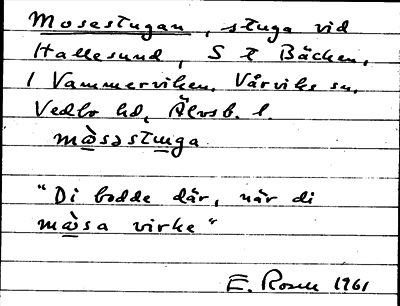 Mosestugan, stuga vid
Hallesund, S t Bäcken,
I Vammerviken. Vårviks sn,
Vedbo hd, Älvsb. l.
mɷ̀səstuga
"Di bodde där, när di
mɷ̀sa virke"
E. Rosell 1961